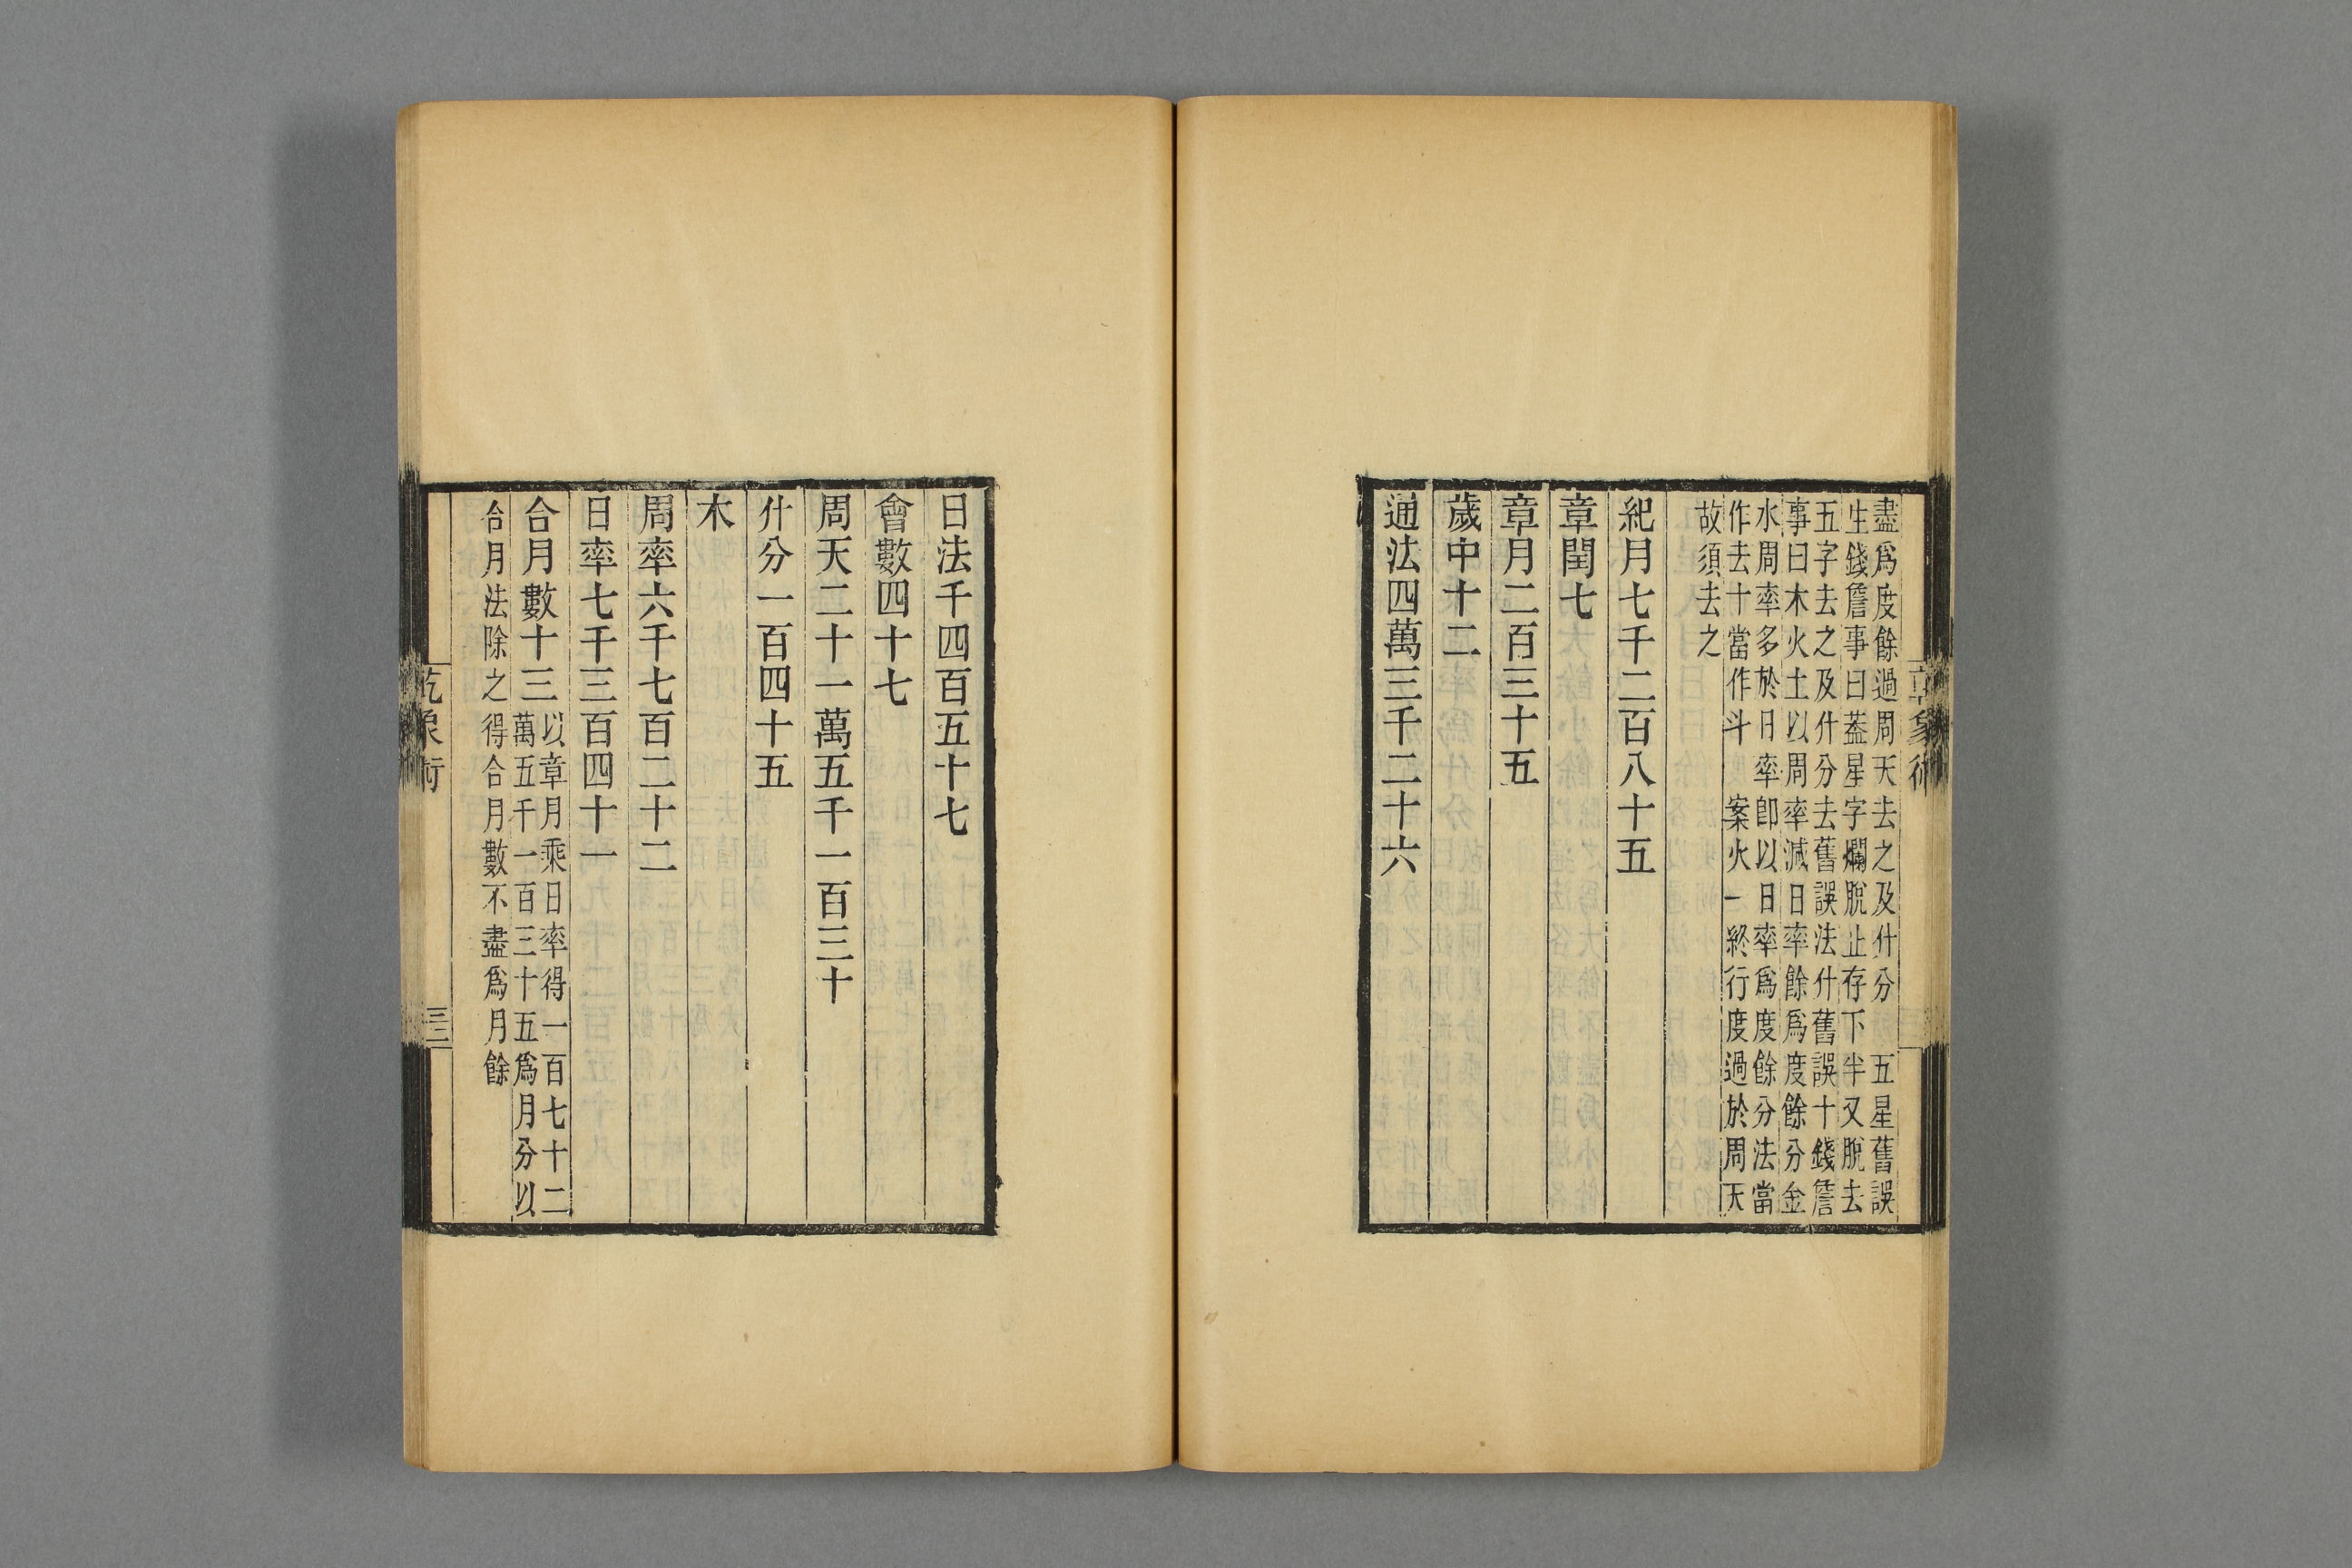 盡爲度餘過周天去之及什分　五星舊誤
生錢詹事曰葢星字爛脫止存下半又脫去
五字去之及什分去舊誤法什舊誤十錢詹
事曰木火土以周率減日率餘爲度餘分金
水周率多於日率卽以日率爲度餘分法當
作去十當作斗　案火一終行度過於周天
故須去之
紀月七千二百八十五
章閏七
章月二百三十五
歲中十二
通法四萬三千二十六
日法千四百五十七
會數四十七
周天二十一萬五千一百三十
什分一百四十五
木
周率六千七百二十二
日率七千三百四十一
合月數十三以章月乘日率得一百七十二
萬五千一百三十五爲月分以
合月法除之得合月數不盡爲月餘
乾象術
三